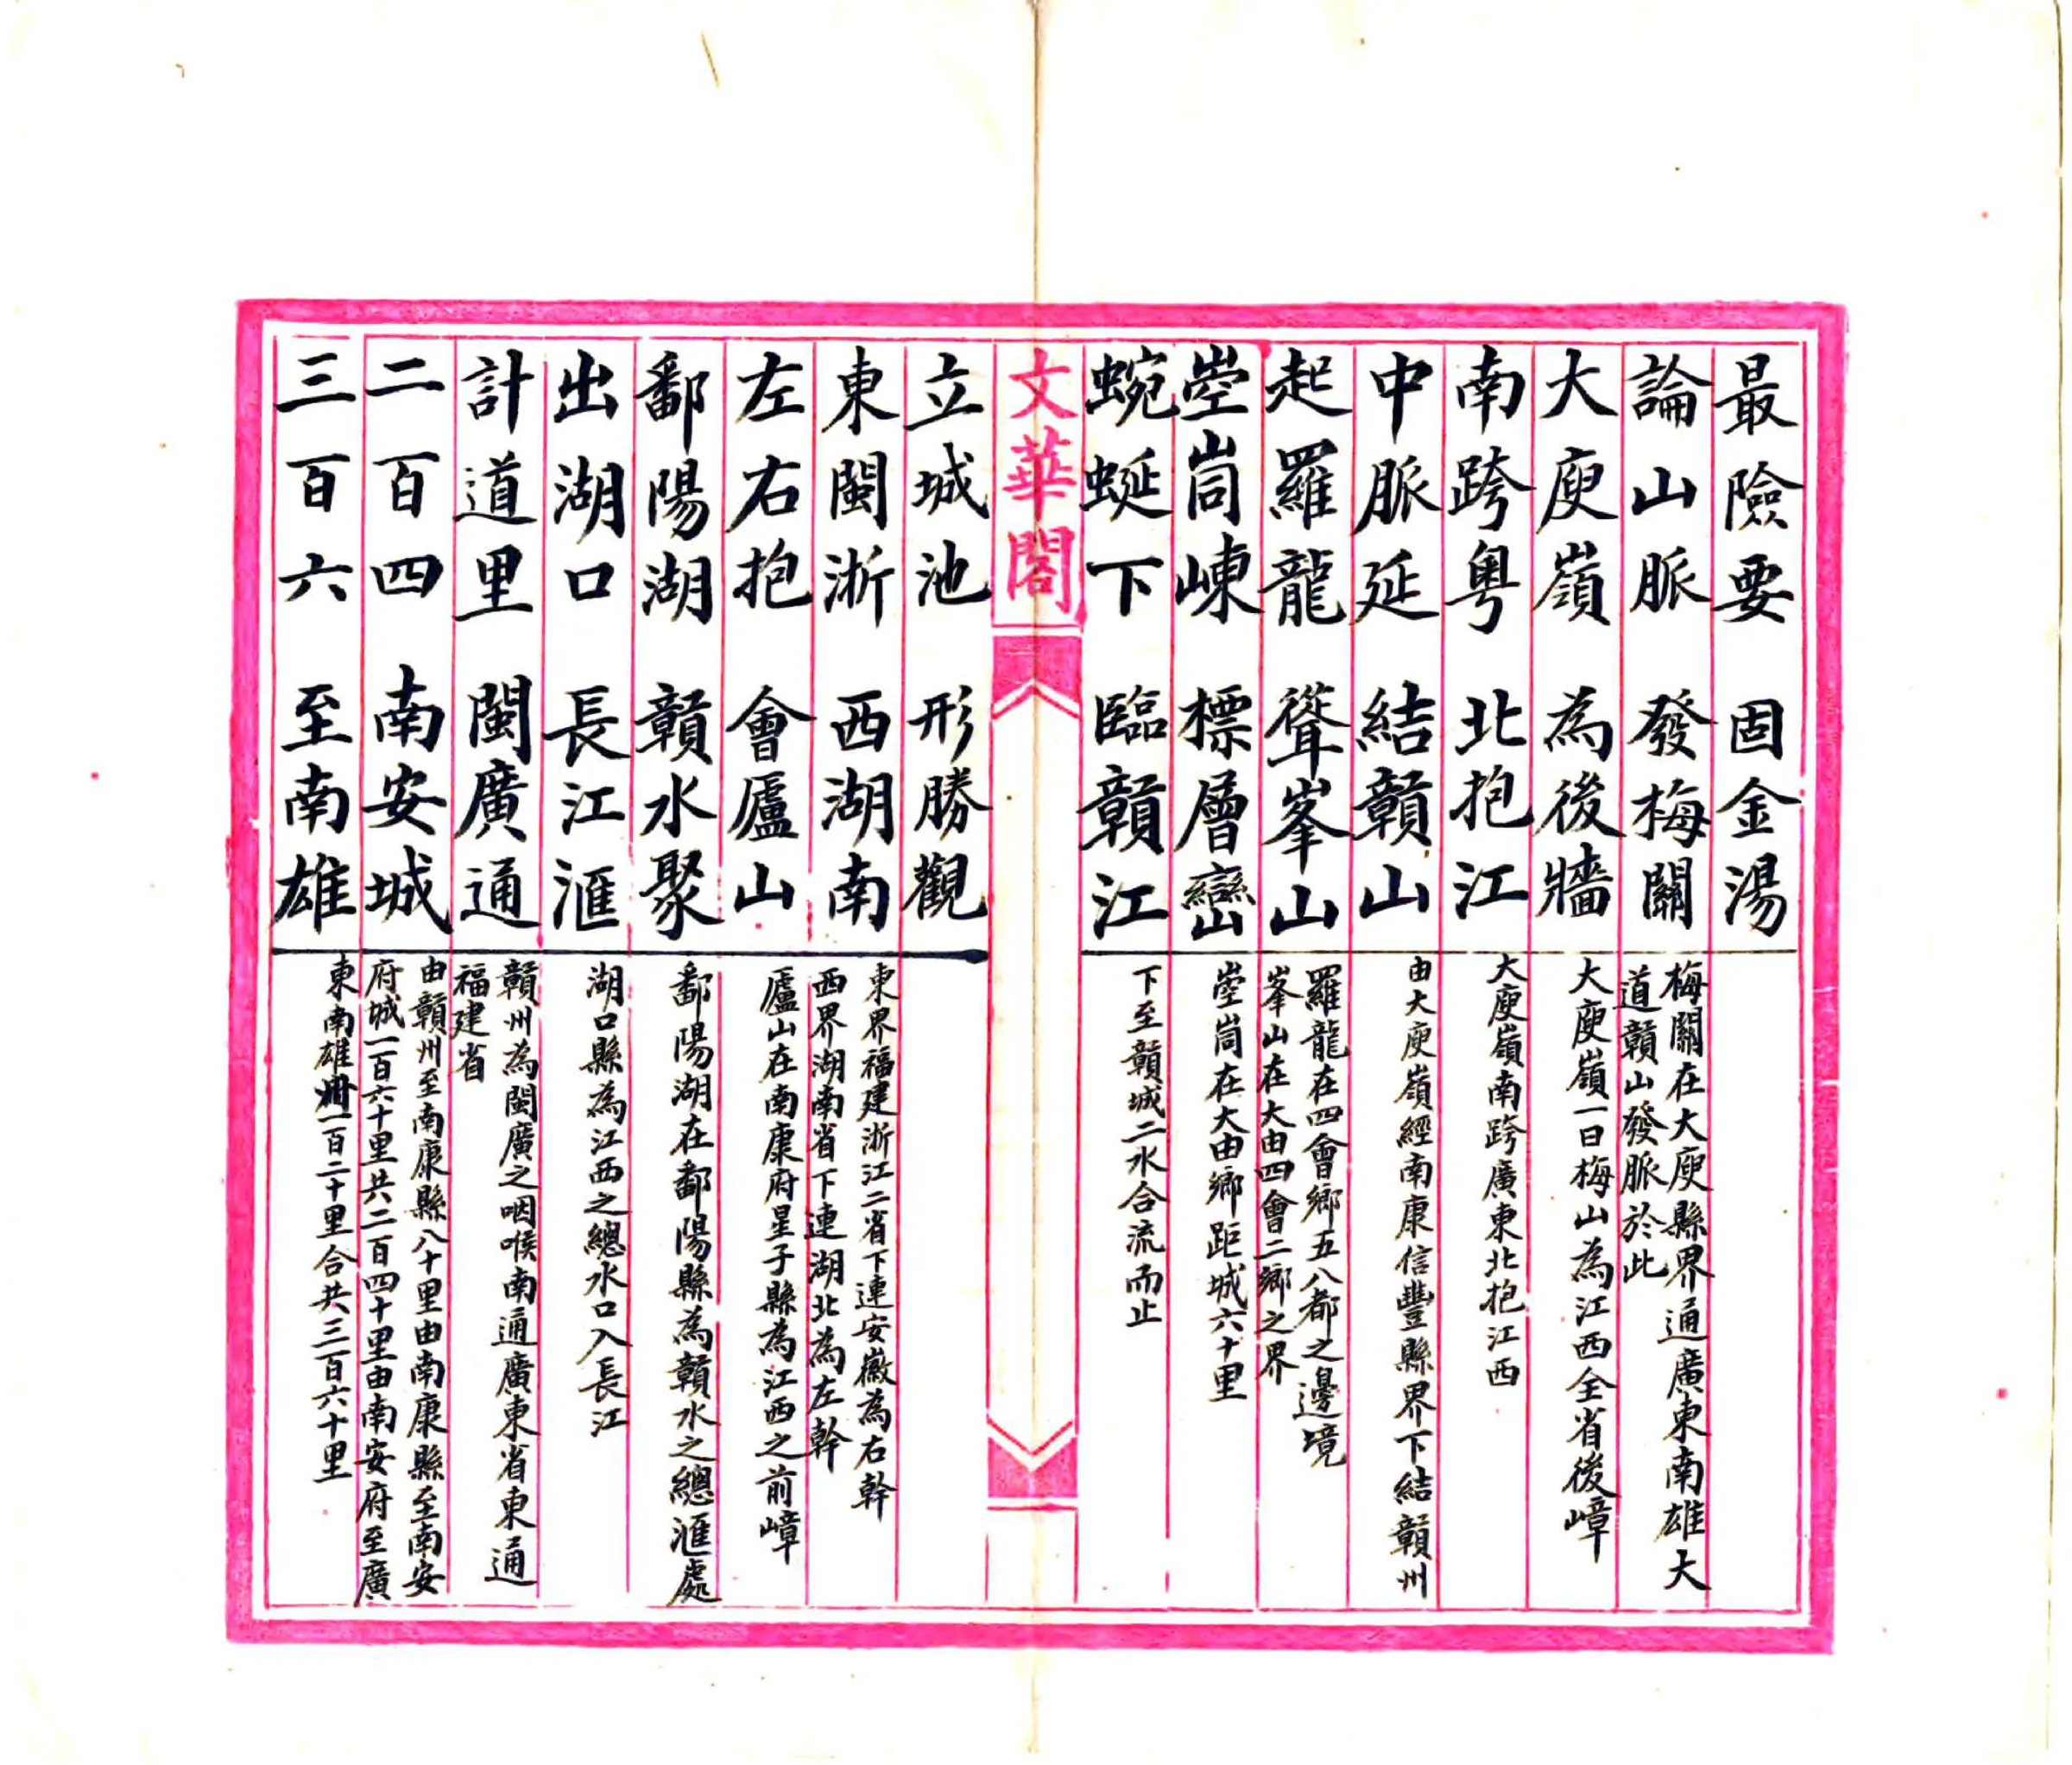 最險要　固金湯
論山脈　發梅關
梅關在大庾縣界通廣東南雄大
道贛山發脈於此
大庾嶺　為後牆
大庾嶺一曰梅山為江西全省後嶂
南跨粵　北抱江
大庾嶺南跨廣東北抱江西
中脈延　結贛山
由大庾嶺經南康信豐縣界下結贛州
起羅龍　聳峯山
羅龍在四會鄉五八都之邊境
峯山在大由四會二鄉之界
崆峒崠　標層巒
崆峒在大由鄉距城六十里
蜿蜒下　臨贛江
下至贛城二水合流而止
文華閣
立城池　形勝觀
東閩浙　西湖南
東界福建浙江二省下連安徽為右幹
西界湖南省下連湖北為左幹
左右抱　會廬山
廬山在南康府星子縣為江西之前嶂
鄱陽湖　贛水聚
鄱陽湖在鄱陽縣為贛水之總滙處
出湖口　長江滙
湖口縣為江西之總水口入長江
計道里　閩廣通
贛州為閩廣之咽喉南通廣東省東通
福建省
二百四　南安城
由贛州至南康縣八十里由南康縣至南安
府城一百六十里共二百四十里由南安府至廣
三百六　至南雄
東南雄州一百二十里合共三百六十里